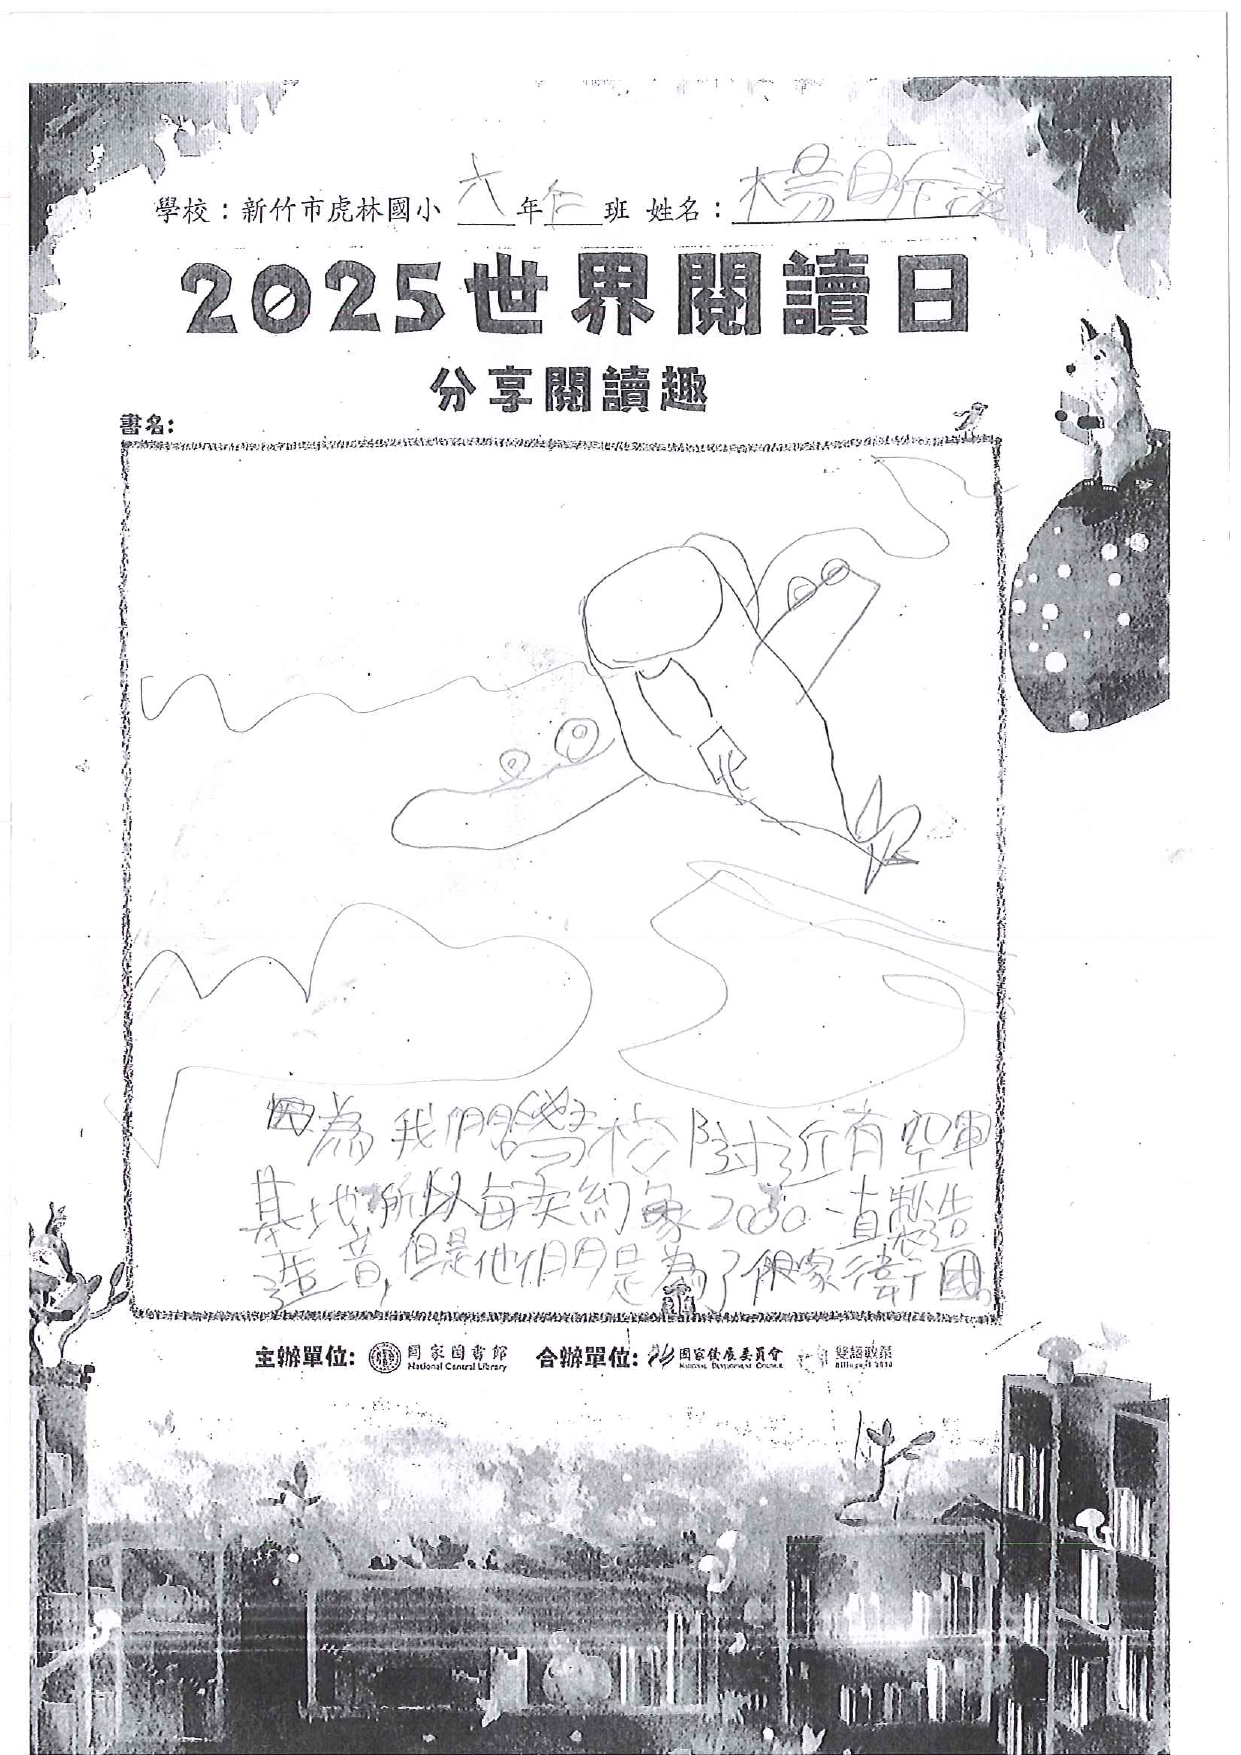 學校：新竹市虎林國小 六 年 仁 班 姓名： 楊昕
2025世界閱讀日
分享閱讀趣
書名:
因為我們學校附近有空軍
基地所以每天約象2000一直製造
造音,但是他們是為了保家衛國。
主辦單位: 國家圖書館 National Central Library 合辦單位: 國家發展委員會 NATIONAL DEVELOPMENT COUNCIL 雙語政策 BILINGUAL 2030